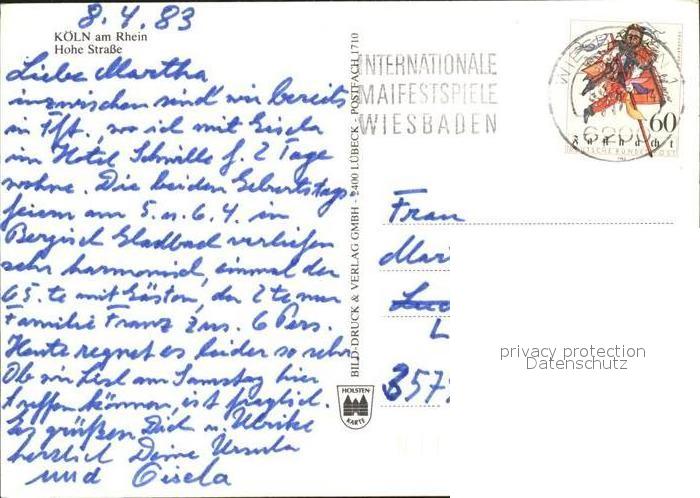 8.4.83
KÖLN am Rhein
Hohe Straße
Liebe Martha
inzwischen sind wir bereits
in Fft, wo ich mit Gisela
im Hotel f. 2 Tage
wohne. Die beiden Geburtstags-
feiern am 5. u. 6.4. in
Bergisch Gladbach verliefen
sehr harmonisch, einmal der
65.te mit Gästen, der 2te nur
Familie Franz zus. 6 Pers.
Heute regnet es leider so sehr
Ob wir am Samstag hier
treffen können, ist fraglich.
Es grüßen Dich u. Ulrike
herzlich Deine Ursula
und Gisela
BILD-DRUCK & VERLAG GMBH - 2400 LÜBECK - POSTFACH 1710
HOLSTEN-
KARTE
INTERNATIONALE
MAIFESTSPIELE
WIESBADEN
WIESBADEN
6200
60
Fastnacht
DEUTSCHE BUNDESPOST
Frau
Mar
L
357
privacy protection
Datenschutz